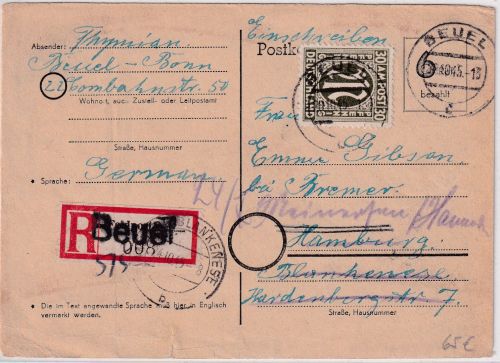 Einschreiben
Absender: Thymian
Beuel-Bonn
22 Combahnstr. 50
Wohnort, auch Zustell- oder Leitpostamt
Straße, Hausnummer
German
Sprache:
R Beuel
008
575
BLANKENESE
Die im Text angewandte Sprache muß hier in Englisch
vermerkt werden.
Postk
30 AM POST 30
DEUTSCHLAND
BEUEL
6
bezahlt
Frau
Emma Gibson
bei Bremer
Hamburg
Blankenese
Hardenbergstr. 7.
Straße, Hausnummer
65€